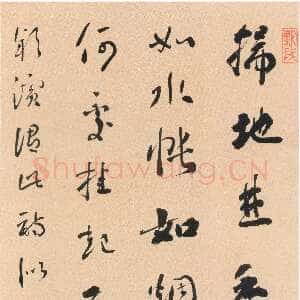 掃地焚香
如水帳如煙
何處挂起
謂此詩似
Shufawang.CN